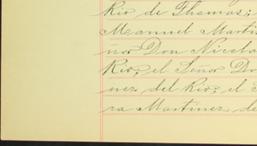 Rio de Thomas;
Manuel Marti
ñor Don Nicola
Rio; el Señor Do
nez del Rio; el
ra Martinez de